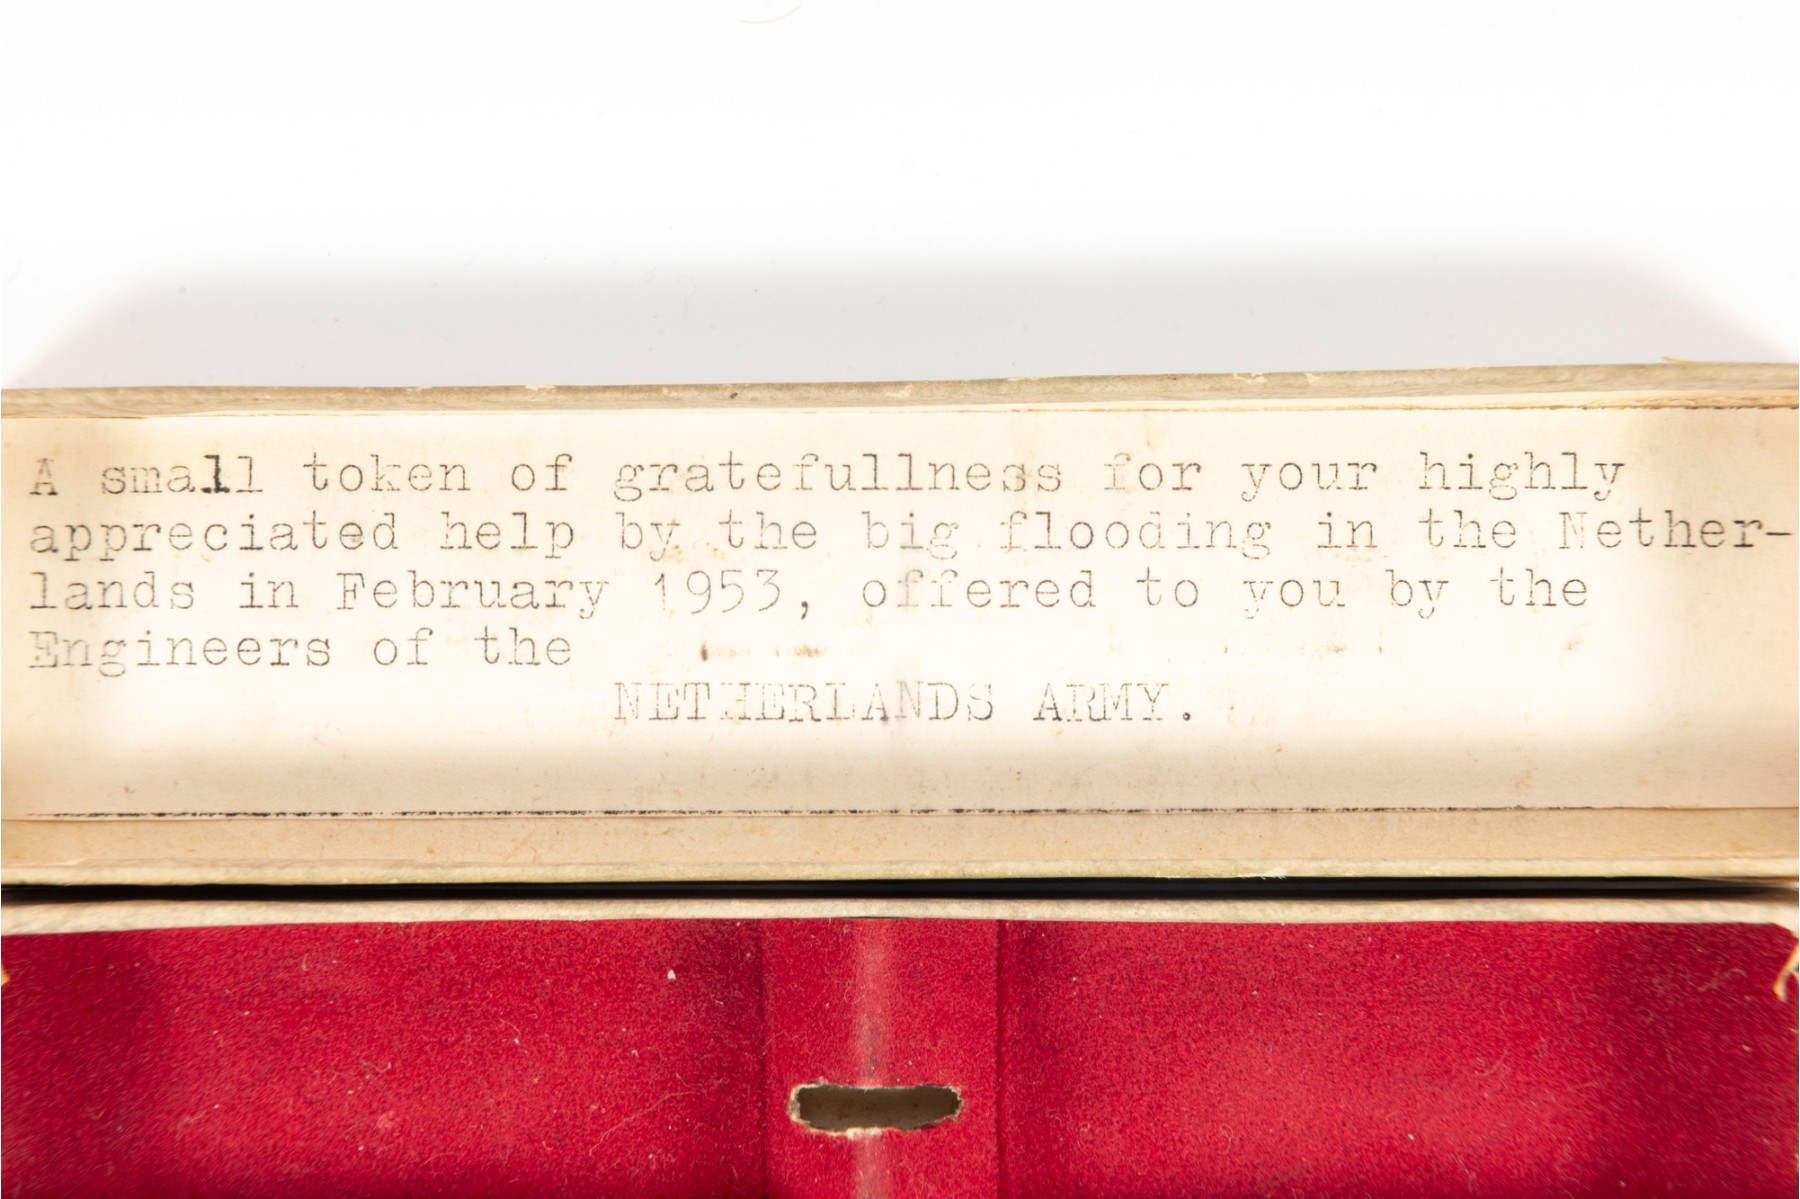 A small token of gratefullness for your highly
appreciated help by the big flooding in the Nether-
lands in February 1953, offered to you by the
Engineers of the
NETHERLANDS ARMY.